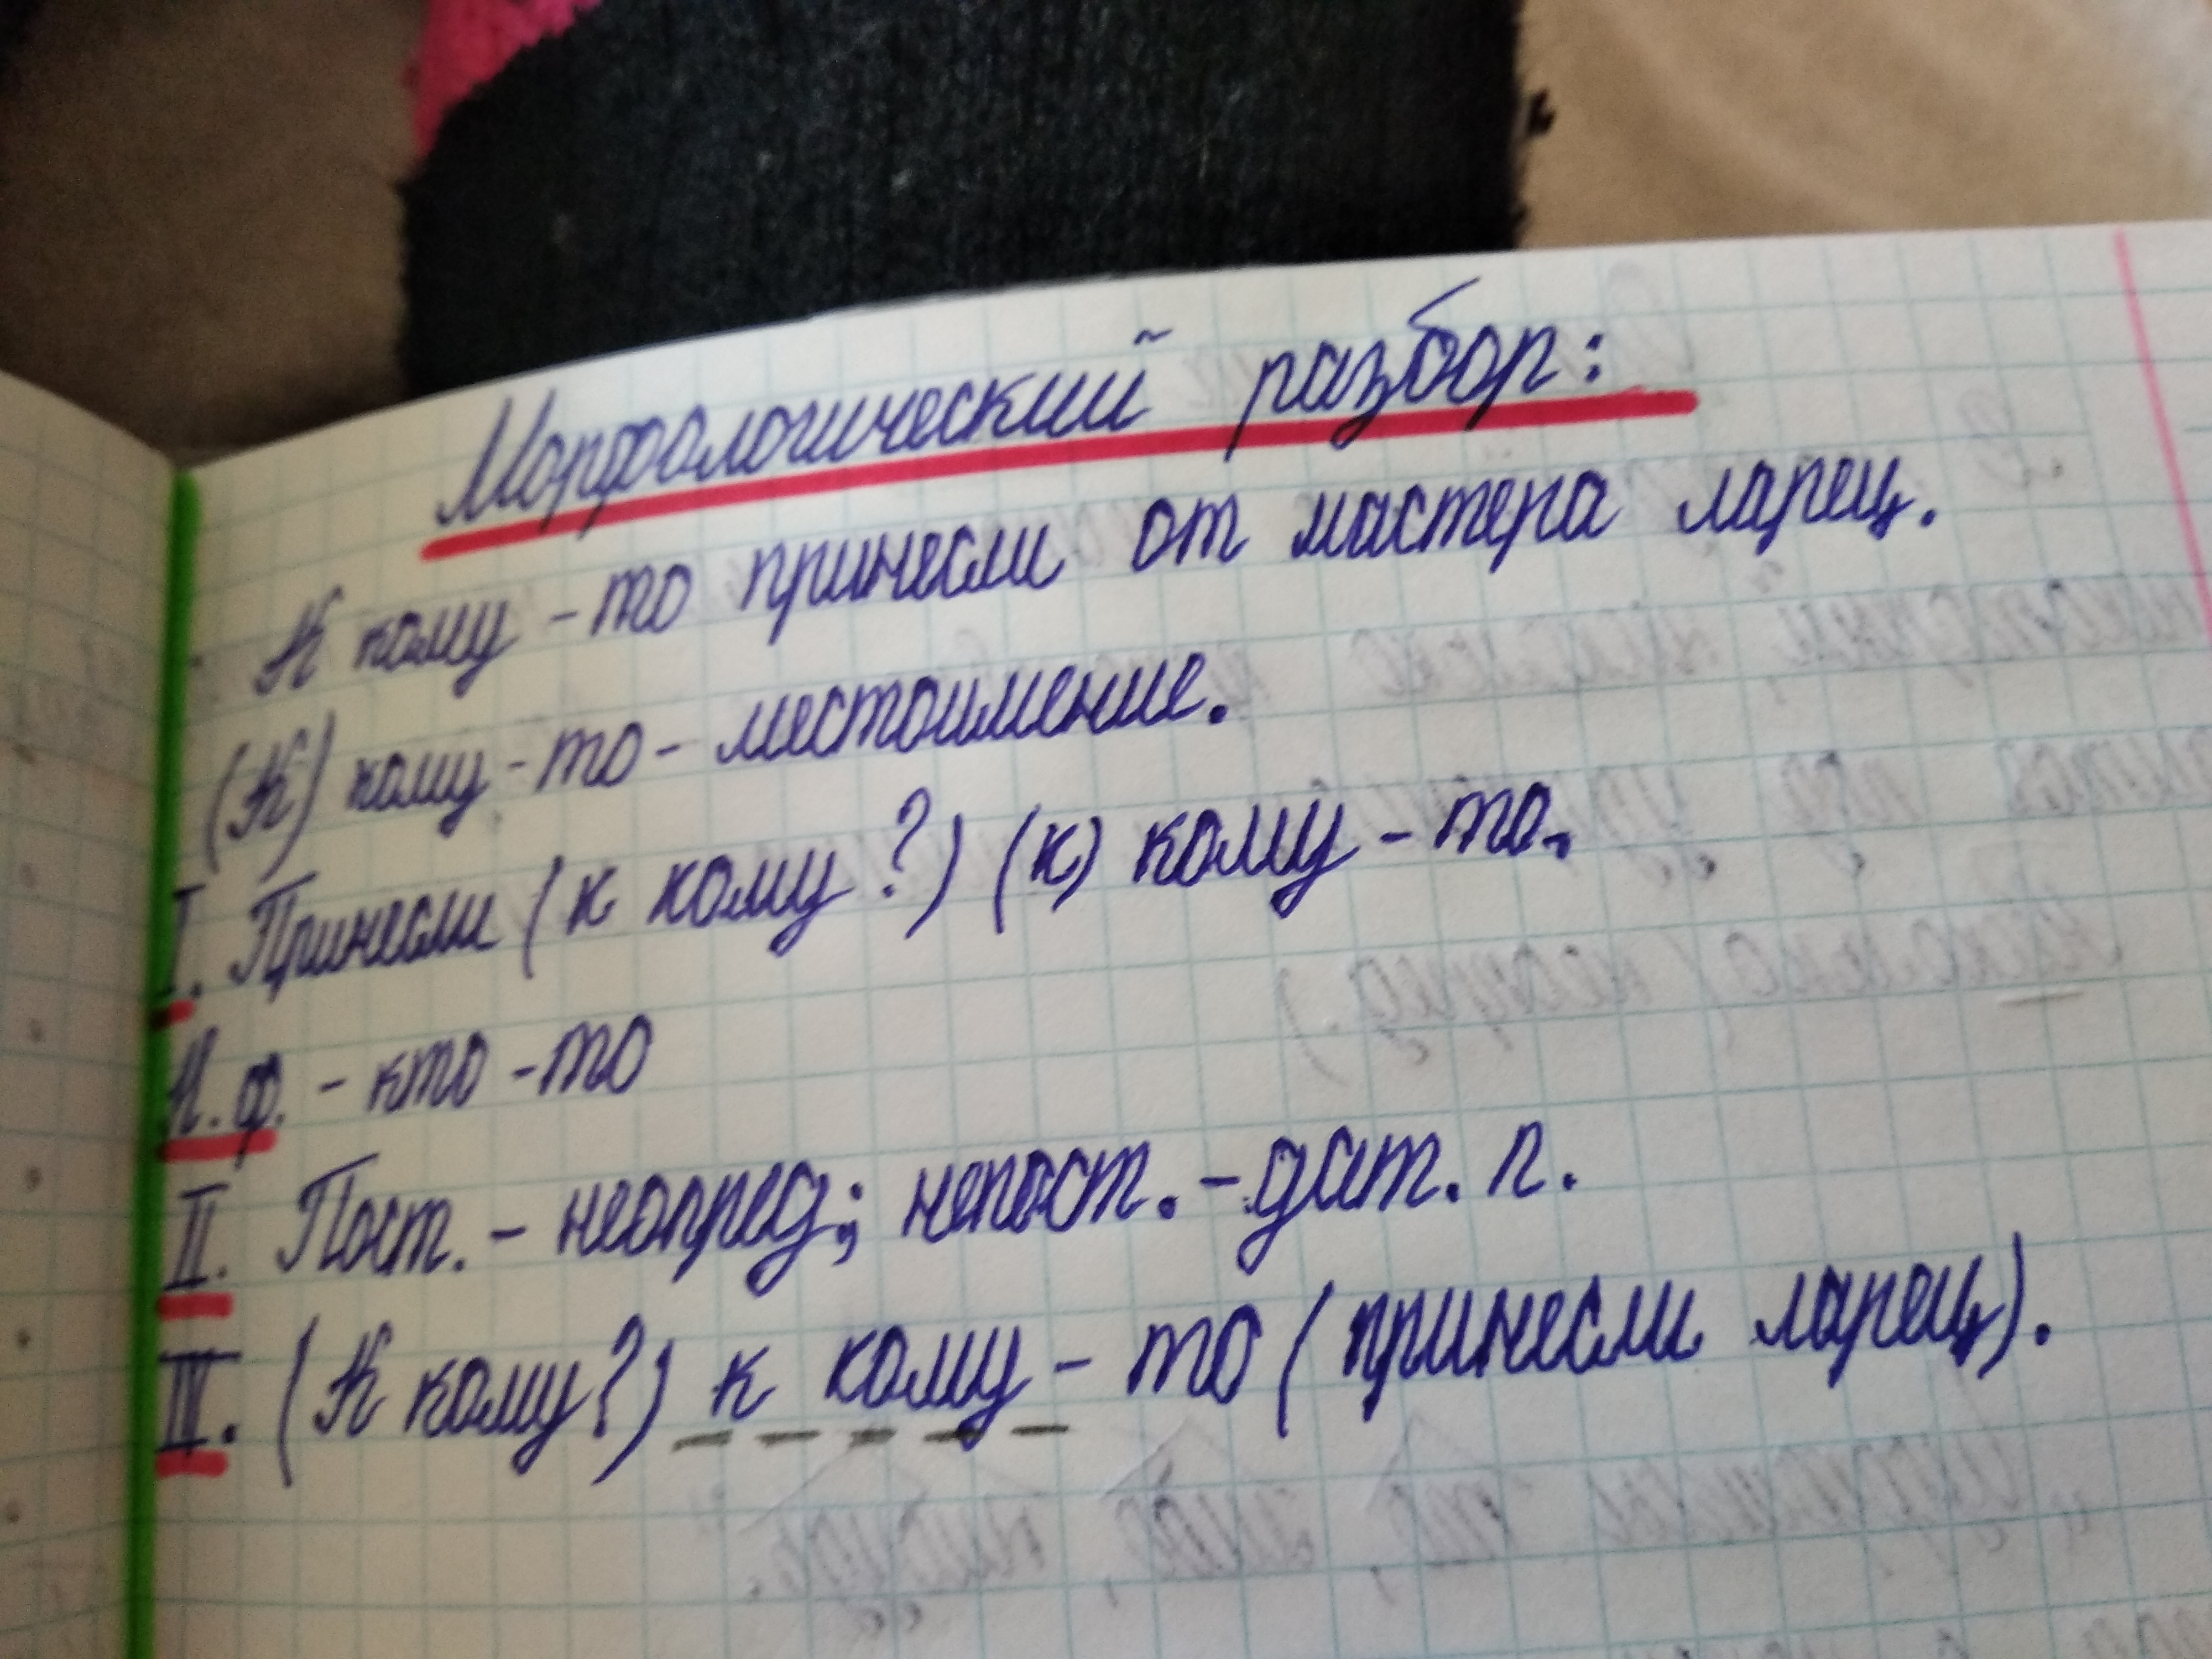 Морфологический разбор:
К кому-то принесли от мастера ларец.
(К) кому-то - местоимение.
I. Принесли (к кому?) (к) кому-то.
Н.ф. - кто-то
II. Пост. - неопред.; непост. - дат. п.
III. (К кому?) к кому-то (принесли ларец).